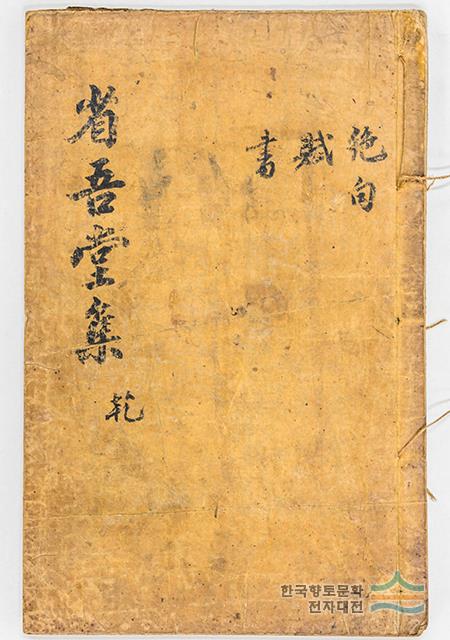 絶句
賦
書
省吾堂集
乾
한국향토문화
전자대전